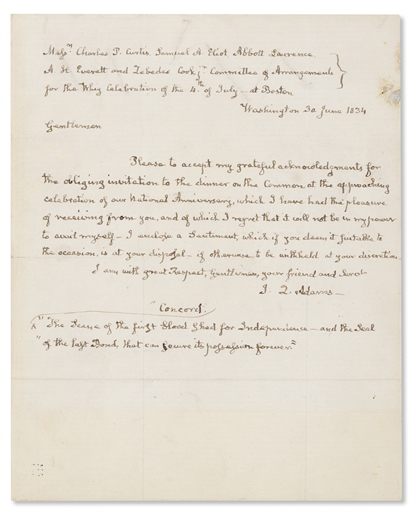 Messrs Charles P. Curtis, Samuel A. Eliot, Abbott Lawrence
A. H. Everett and Zebedee Cook jr. Committee of Arrangements
for the Whig Celebration of the 4th of July – at Boston
Washington 30 June 1834
Gentlemen
Please to accept my grateful acknowledgments for
the obliging invitation to the dinner on the Common at the approaching
celebration of our National Anniversary, which I have had the pleasure
of receiving from you, and of which I regret that it will not be in my power
to avail myself – I enclose a Sentiment, which if you deem it suitable to
the occasion, is at your disposal – if otherwise to be withheld at your discretion.
I am with great Respect, Gentlemen, your friend and Servt
J. Q. Adams –
Concord.
"The Scene of the first blood shed for Independence – and the Seal
of the last Bond, that can secure its possession forever."